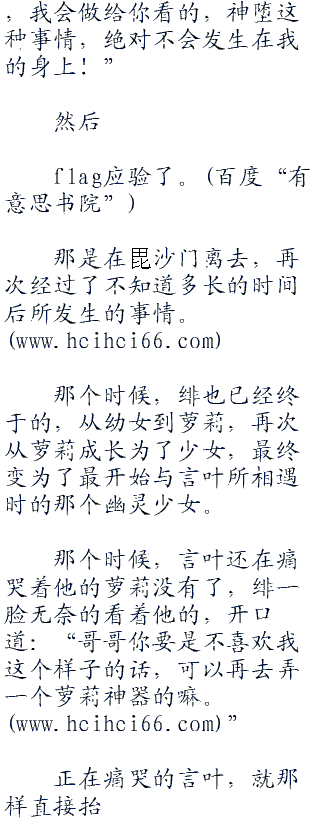 ，我会做给你看的，神堕这
种事情，绝对不会发生在我
的身上！”
然后
flag应验了。(百度“有
意思书院”)
那是在毘沙门离去，再
次经过了不知道多长的时间
后所发生的事情。
(www.hcihci66.com)
那个时候，绯也已经终
于的，从幼女到萝莉，再次
从萝莉成长为了少女，最终
变为了最开始与言叶所相遇
时的那个幽灵少女。
那个时候，言叶还在痛
哭着他的萝莉没有了，绯一
脸无奈的看着他的，开口
道：“哥哥你要是不喜欢我
这个样子的话，可以再去弄
一个萝莉神器的嘛。
(www.hcihci66.com)”
正在痛哭的言叶，就那
样直接抬